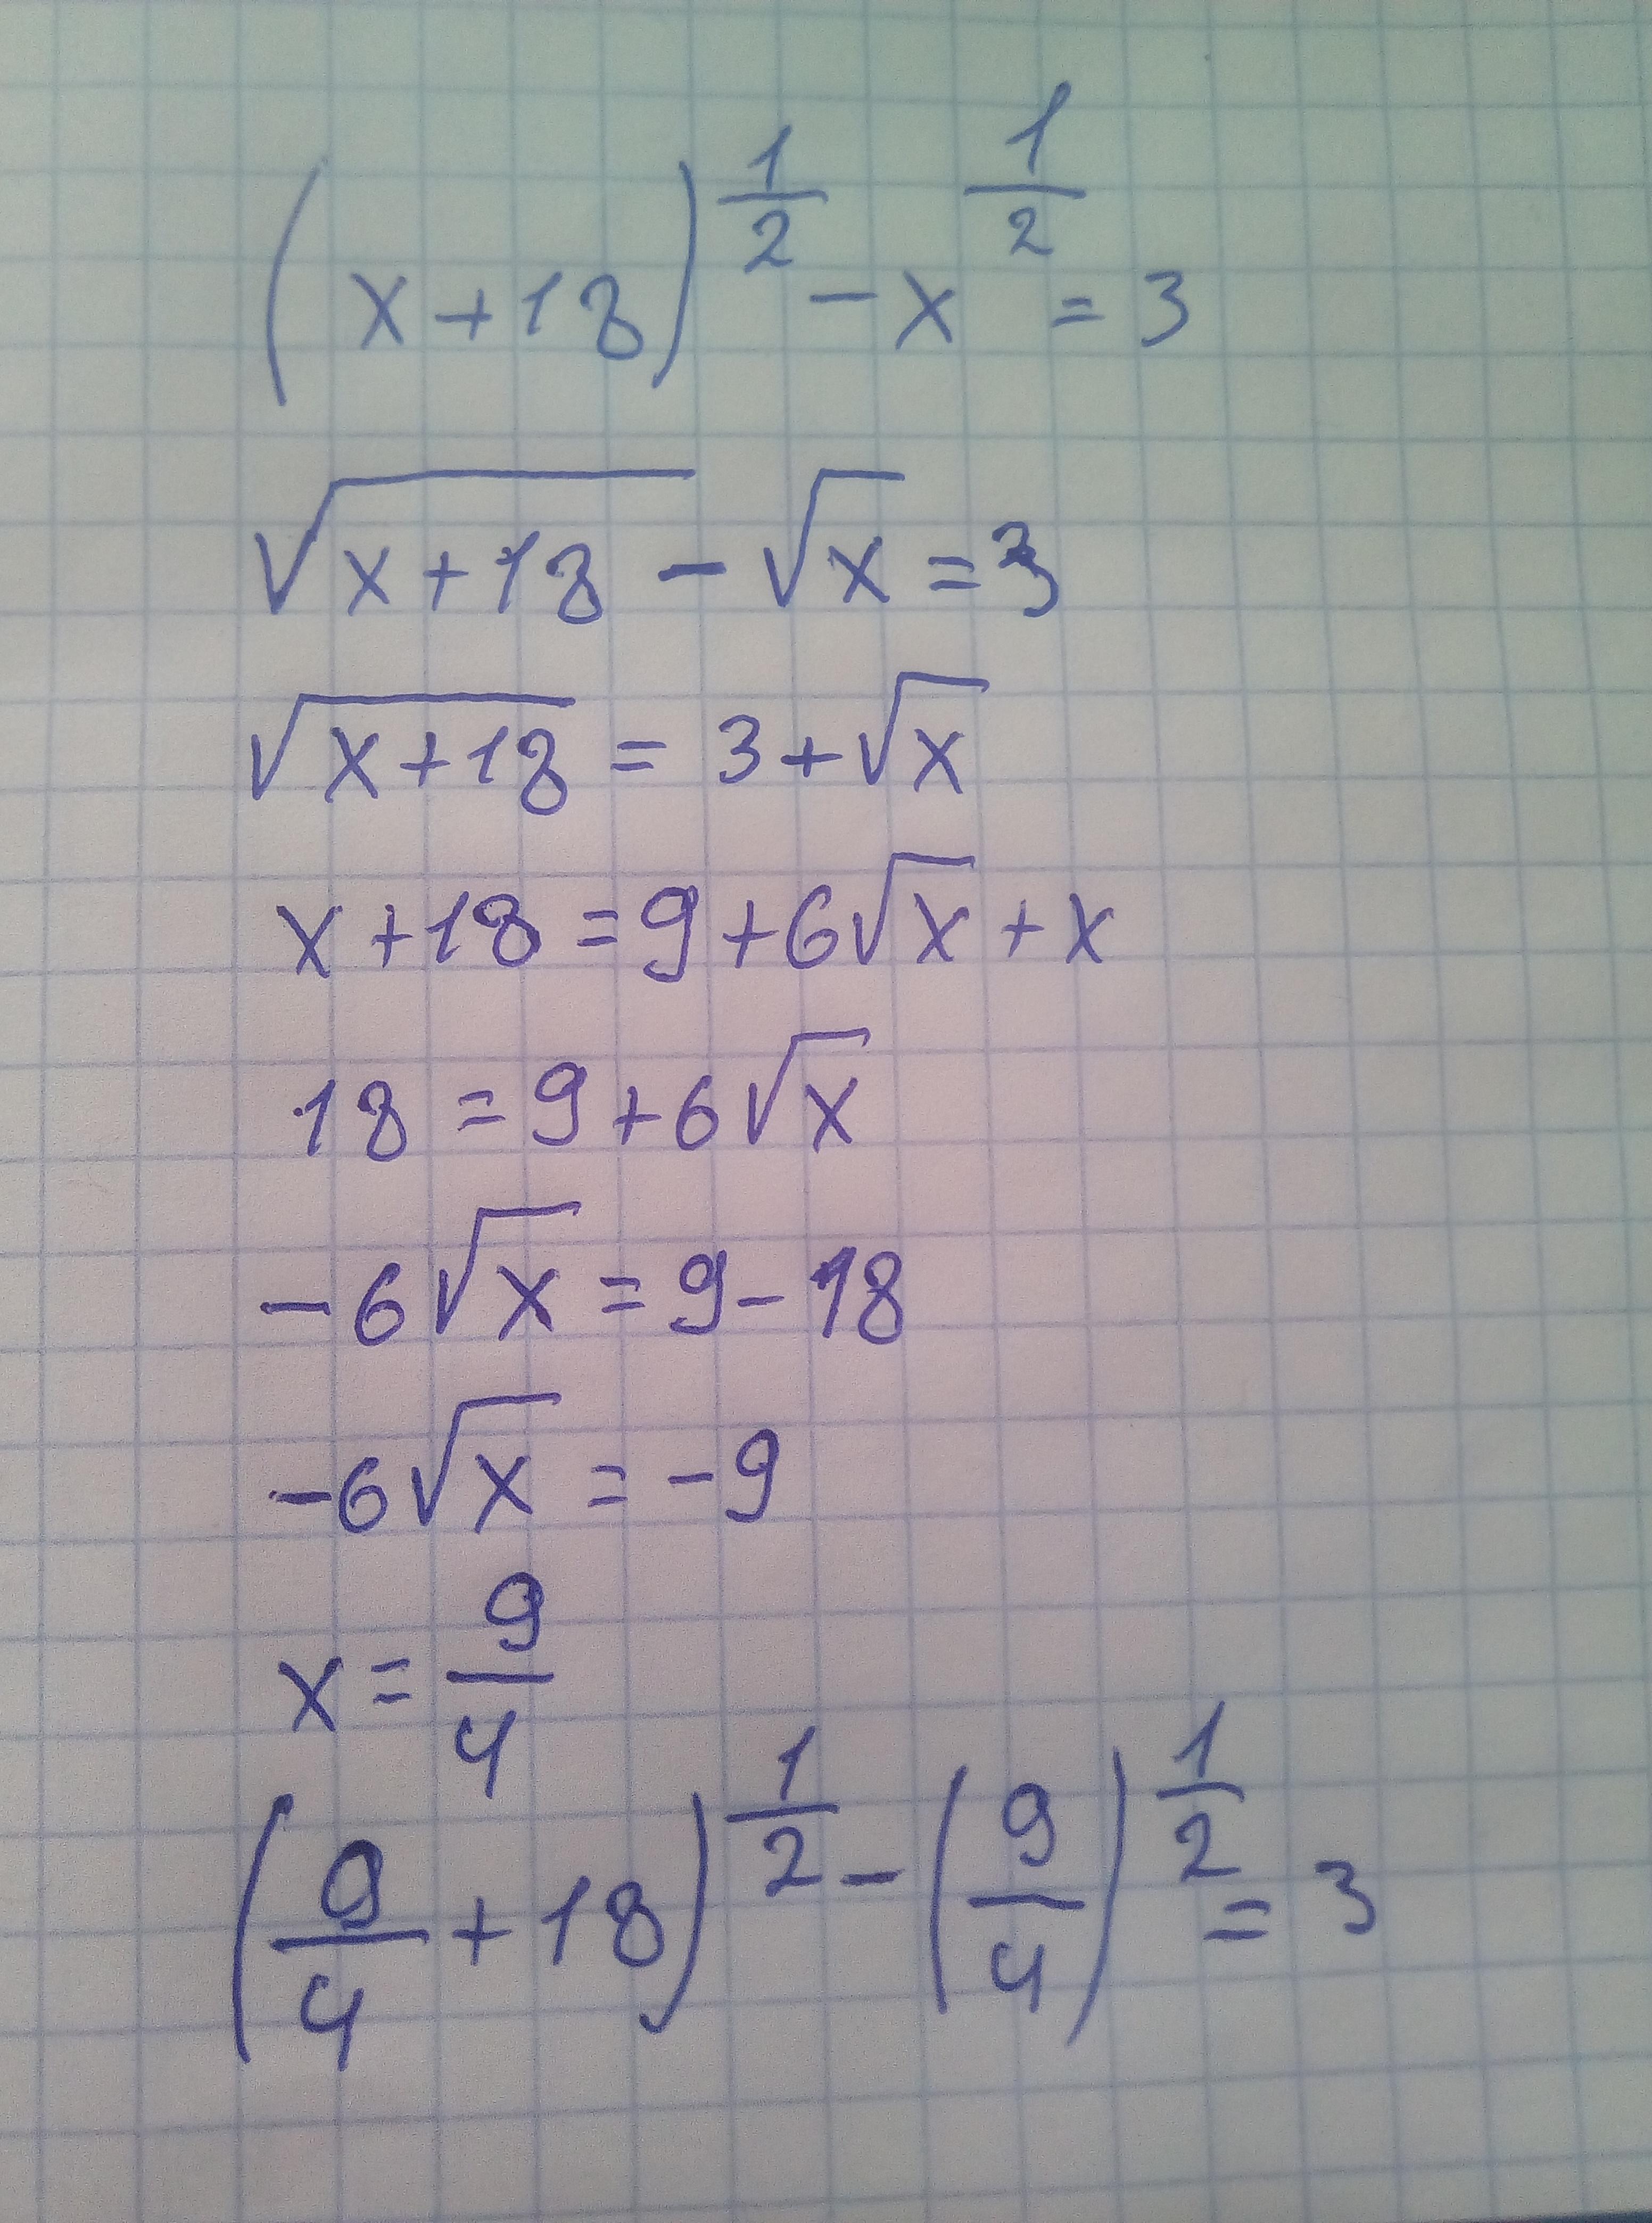 (x+18)^(1/2) - x^(1/2) = 3
√(x+18) - √x = 3
√(x+18) = 3+√x
x+18 = 9+6√x+x
18 = 9+6√x
-6√x = 9-18
-6√x = -9
x = 9/4
(9/4+18)^(1/2) - (9/4)^(1/2) = 3